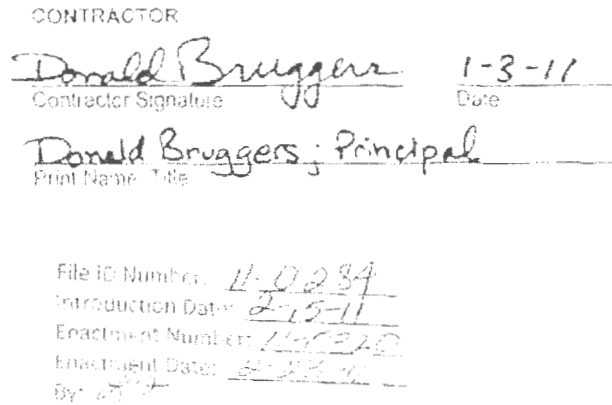 CONTRACTOR
Donald Bruggers 1-3-11
Contractor Signature Date
Donald Bruggers; Principal
Print Name, Title
File ID Number: 11-0284
Introduction Date: 2-15-11
Enactment Number:
Enactment Date:
By: